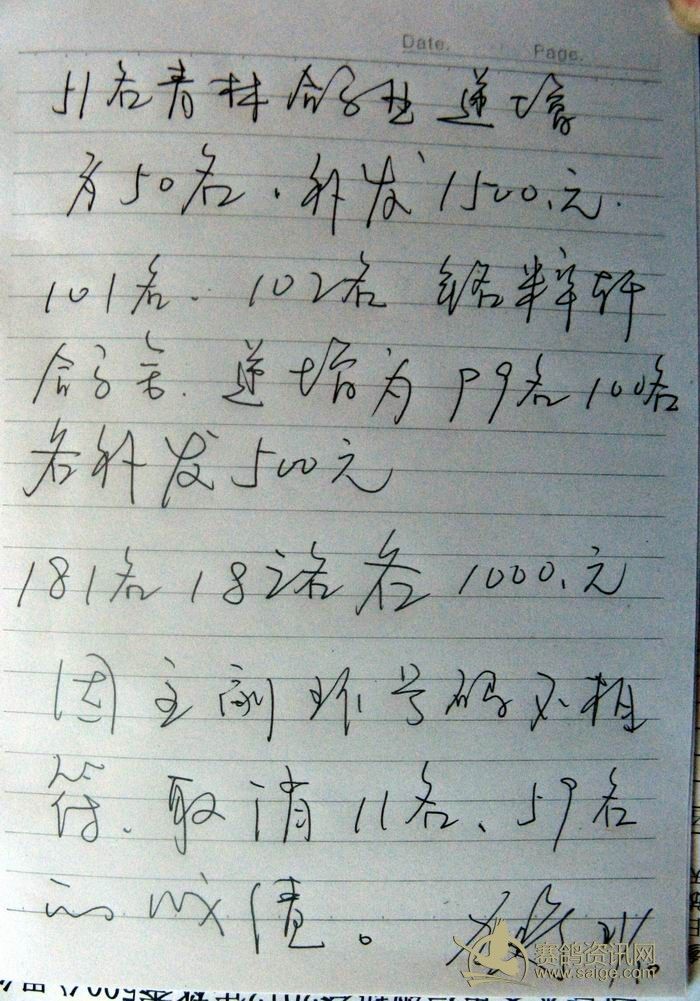 Date. Page.
51名青林鸽社递增
为50名.补发1500.元.
101名. 102名 铭粹轩
鸽舍.递增为99名100名
各补发500元
181名182名各1000.元
因主副环号码不相
符.取消11名、59名
的成绩。
赛鸽资讯网
www.saige.com